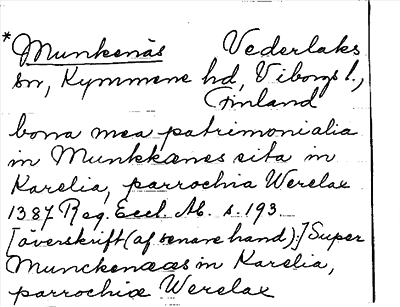 * Munkenäs Vederlaks
sn, Kymmene hd, Viborgs l.,
Finland
bona mea patrimonialia
in Munkkænes sita in
Karelia, parrochia Werelax
1387 Reg. Eccl. Ab. s. 193
[överskrift (af senare hand):] Super
Munckenææs in Karelia,
parrochiæ Werelax